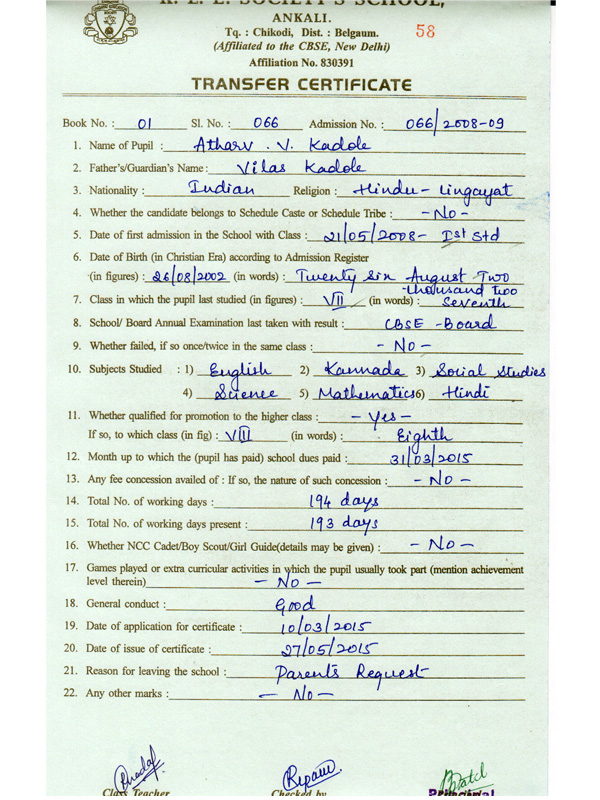 K. L. E. SOCIETY'S SCHOOL,
ANKALI.
Tq. : Chikodi, Dist. : Belgaum.
58
(Affiliated to the CBSE, New Delhi)
Affiliation No. 830391
TRANSFER CERTIFICATE
Book No. : 01 Sl. No. : 066 Admission No. : 066/2008-09
1. Name of Pupil : Atharv . V. Kadole
2. Father's/Guardian's Name : Vilas Kadole
3. Nationality : Indian Religion : Hindu - Lingayat
4. Whether the candidate belongs to Schedule Caste or Schedule Tribe : - No -
5. Date of first admission in the School with Class : 21/05/2008 - Ist Std
6. Date of Birth (in Christian Era) according to Admission Register
(in figures) : 26/08/2002 (in words) : Twenty Six August Two
thousand two
7. Class in which the pupil last studied (in figures) : VII (in words) : Seventh
8. School/ Board Annual Examination last taken with result : CBSE - Board
9. Whether failed, if so once/twice in the same class : - No -
10. Subjects Studied : 1) English 2) Kannada 3) Social Studies
4) Science 5) Mathematics 6) Hindi
11. Whether qualified for promotion to the higher class : - Yes -
If so, to which class (in fig) : VIII (in words) : Eighth
12. Month up to which the (pupil has paid) school dues paid : 31/03/2015
13. Any fee concession availed of : If so, the nature of such concession : - No -
14. Total No. of working days : 194 days
15. Total No. of working days present : 193 days
16. Whether NCC Cadet/Boy Scout/Girl Guide(details may be given) : - No -
17. Games played or extra curricular activities in which the pupil usually took part (mention achievement
level therein) - No -
18. General conduct : Good
19. Date of application for certificate : 10/03/2015
20. Date of issue of certificate : 27/05/2015
21. Reason for leaving the school : Parent's Request
22. Any other marks : - No -
Class Teacher Checked by Principal